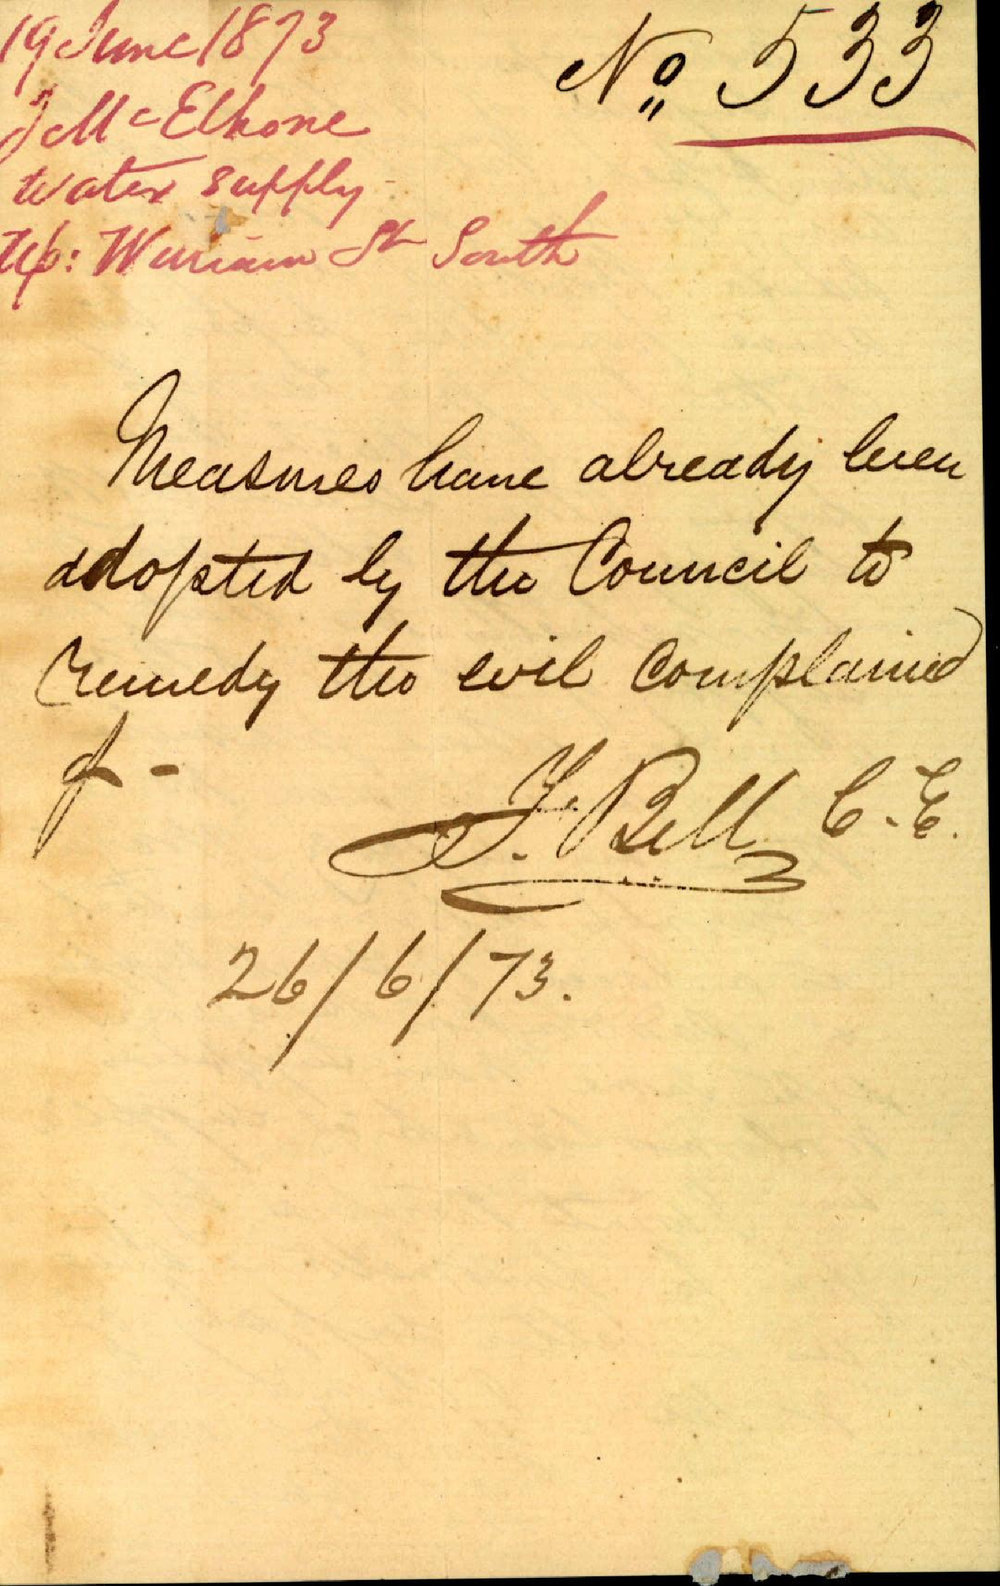 19 June 1873
J McElhone
Water supply
Up: William St South
No 533
Measures have already been
adopted by the Council to
remedy the evil complained
of -
F. Bell C.E.
26/6/73.